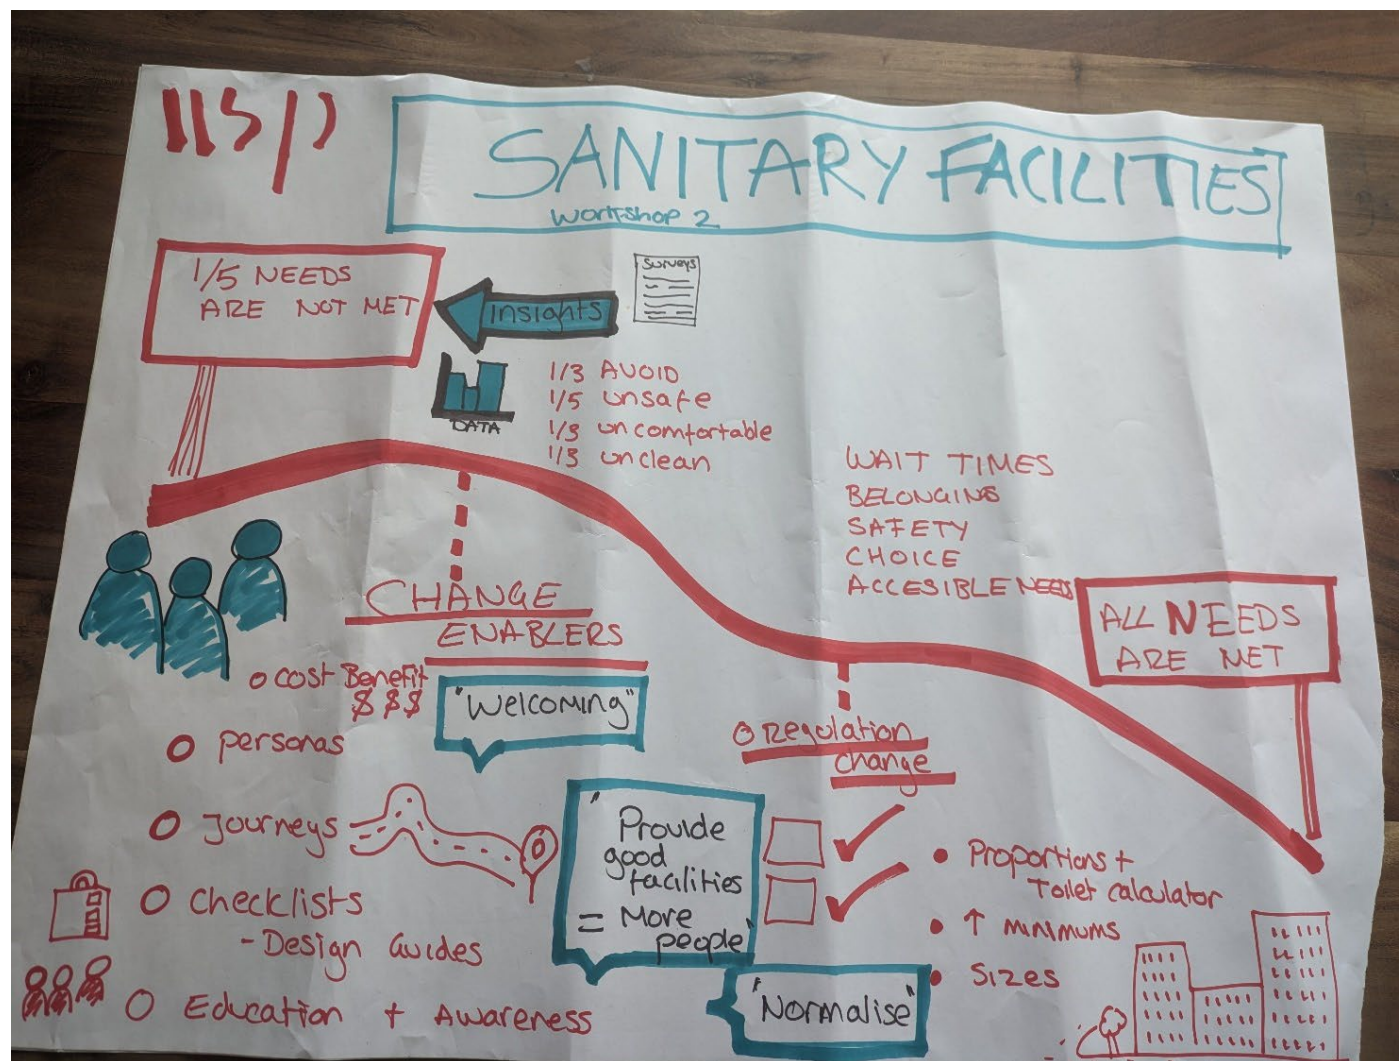 wsp
SANITARY FACILITIES
Workshop 2
1/5 NEEDS
ARE NOT MET
Insights
Surveys
DATA
1/3 AVOID
1/5 unsafe
1/3 uncomfortable
1/3 unclean
WAIT TIMES
BELONGING
SAFETY
CHOICE
ACCESIBLE NEEDS
ALL NEEDS
ARE MET
CHANGE
ENABLERS
O COST Benefit
$ $ $
O personas
O Journeys
O Checklists
- Design Guides
O Education + Awareness
"Welcoming"
"Provide
good
facilities
= More
people"
"Normalise"
O Regulation
change
• Proportions +
Toilet calculator
• ↑ minimums
• Sizes